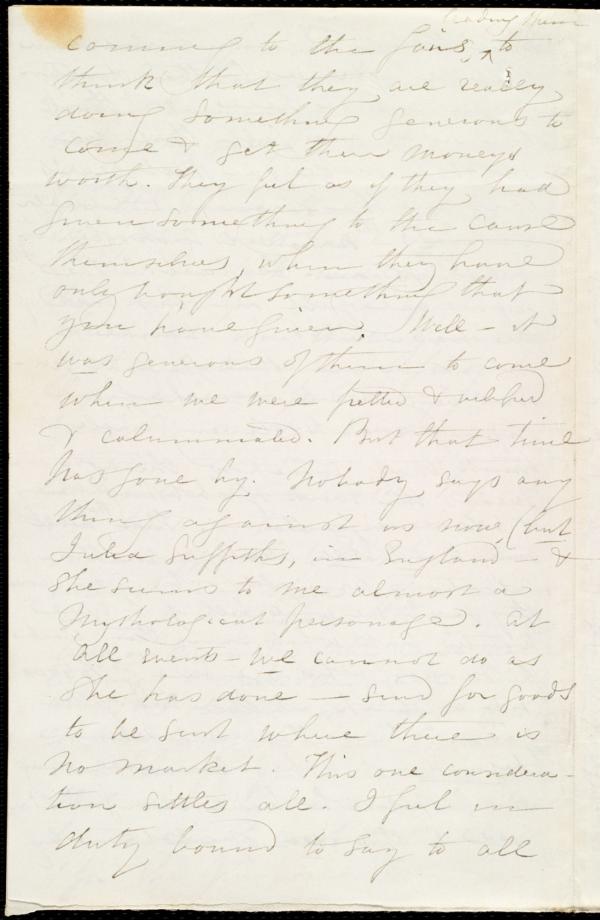 leading them
coming to the fairs, ^ to
think that they are really
doing something generous to
come & get their moneys
worth. They feel as if they had
given something to the cause
themselves, when they have
only bought something that
you have given. Well - it
was generous of them to come
when we were pelted &
& calumniated. But that time
has gone by. Nobody says any
thing against us now, (but
Julia Griffiths, in England - &
she seems to me almost a
Mythological personage. At
all events - we cannot do as
she has done - send for goods
to be sent where there is
no market. This one considera-
tion settles all. I feel in
duty bound to say to all